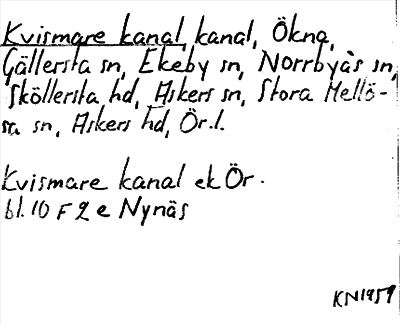 Kvismare kanal, kanal, Ökna,
Gällersta sn, Ekeby sn, Norrbyås sn,
Sköllersta hd, Askers sn, Stora Mellö-
sa sn, Askers hd, Ör.l.
Kvismare kanal ek Ör.
bl. 10 F 2 e Nynäs
KN 1959